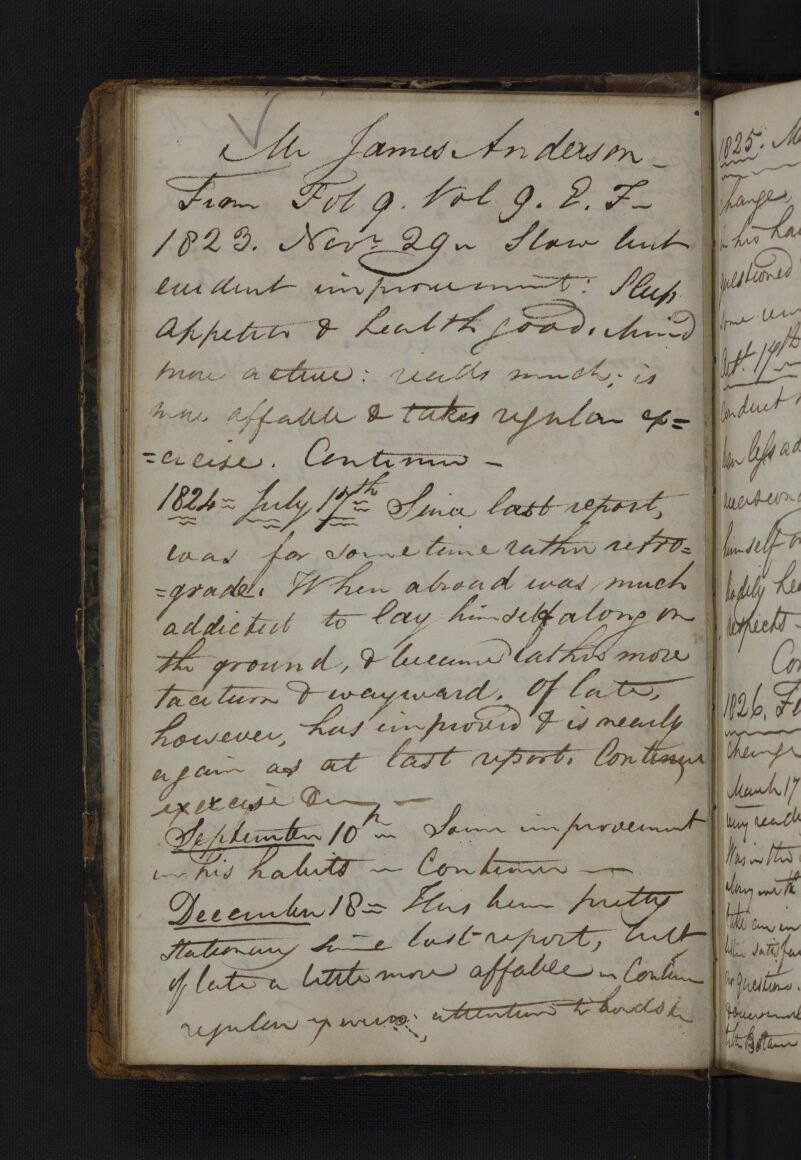 Mr James Anderson -
From Fol 9. Vol 9. E. F-
1823. Novr 29 Slow but
evident improvement: Sleep
appetite & health good. Mind
more active: reads much; is
more affable & takes regular ex=
=ercise. Continue -
1824 = July 17th = Since last report,
was for sometime rather retro=
=grade. When abroad was much
addicted to lay himself along on
the ground, & became rather more
taciturn & wayward. Of late,
however, has improved & is nearly
again as at last report. Continue
exercise &c -
September 10th Some improvement
in his habits - Continue -
December 18 = Has been pretty
stationary since last report, but
of late a little more affable - Continue
regular exercise, attention to
1825. M
change,
in his ha
questioned
some
Octr. 17th
conduct
less ad
himself o
bodily he
respects -
Co
1826. Fe
change
March 17
very read
Was in the
along
questions.